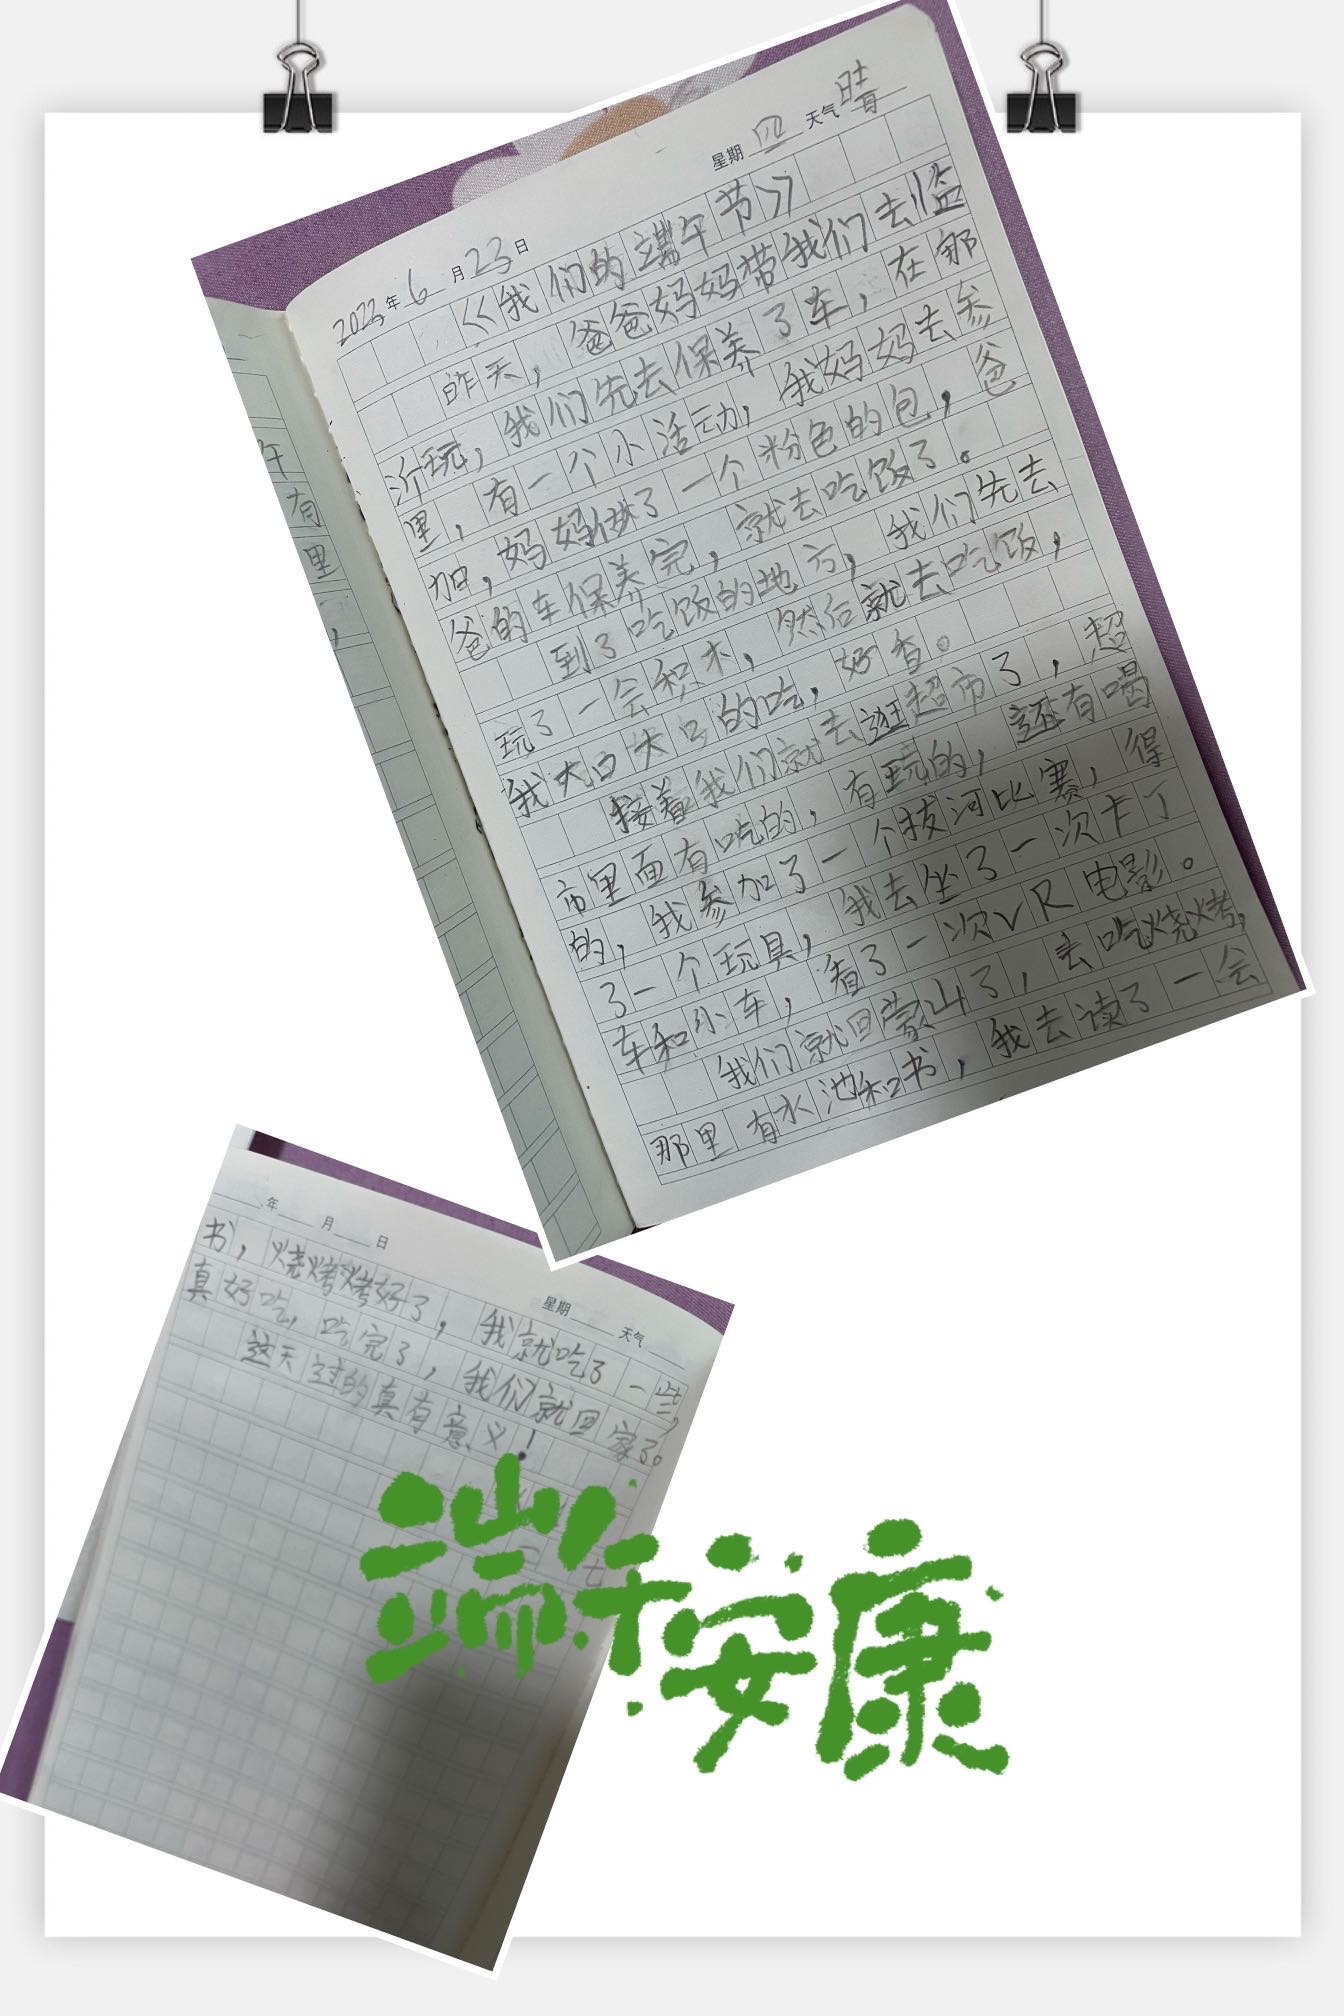 2023年6月23日 星期四 天气晴
《我们的端午节》
昨天，爸爸妈妈带我们去临
沂玩，我们先去保养了车，在那
里，有一个小活动，我妈妈去参
加，妈妈做了一个粉色的包，爸
爸的车保养完，就去吃饭了。
到了吃饭的地方，我们先去
玩了一会积木，然后就去吃饭，
我大口大口的吃，好香。
接着我们就去逛超市了，超
市里面有吃的，有玩的，还有喝
的，我参加了一个拔河比赛，得
了一个玩具，我去坐了一次卡丁
车和小车，看了一次VR电影。
我们就回蒙山了，去吃烧烤，
那里有水池和书，我去读了一会
午
有
里
，
年 月 日 星期 天气
书，烧烤烤好了，我就吃了一些，
真好吃，吃完了，我们就回家了。
这天过的真有意义！
端午安康